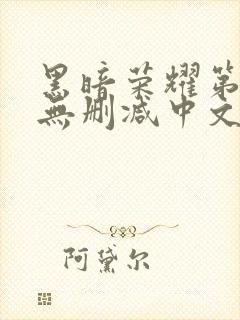 黑暗荣耀第
無删减中文
阿黛尔